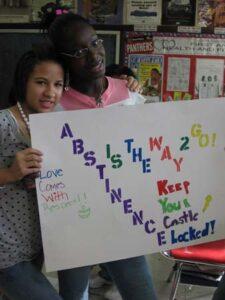 PANTHERS
HEALTH AND
ABSTINENCE
IS THE WAY 2 GO!
Love
Comes
With
Respect!
Keep
Your
Castle
Locked!